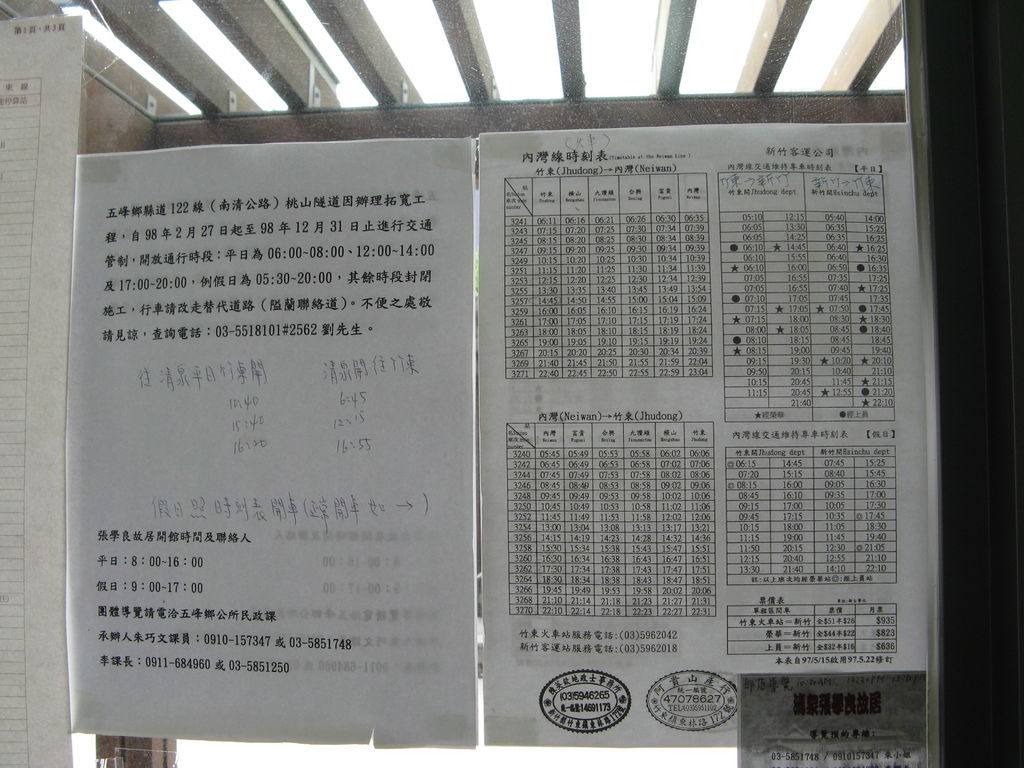 第1頁，共3頁
東 線
五峰鄉縣道 122 線（南清公路）桃山隧道因辦理拓寬工
程，自 98 年 2 月 27 日起至 98 年 12 月 31 日止進行交通
管制，開放通行時段：平日為 06:00~08:00、12:00~14:00
及 17:00~20:00，例假日為 05:30~20:00，其餘時段封閉
施工，行車請改走替代道路（隘蘭聯絡道）。不便之處敬
請見諒，查詢電話：03-5518101#2562 劉先生。
往 清泉平日竹東開 清泉開往竹東
10:40 6:45
15:40 12:15
16:20 16:55
假日照時刻表開車
張學良故居開館時間及聯絡人
平日：8：00~16：00
假日：9：00-17：00
團體導覽請電洽五峰鄉公所民政課
承辦人朱巧文課員：0910-157347 或 03-5851748
李課長：0911-684960 或 03-5851250
(火車)
內灣線時刻表(Timetable at the Neiwan Line)
竹東(Jhudong)→內灣(Neiwan)
站 竹東 橫山 九讚頭 合興 富貴 內灣
3241 06:11 06:16 06:21 06:26 06:30 06:35
3243 07:15 07:20 07:25 07:30 07:34 07:39
3245 08:15 08:20 08:25 08:30 08:34 08:39
3247 09:15 09:20 09:25 09:30 09:34 09:39
3249 10:15 10:20 10:25 10:30 10:34 10:39
3251 11:15 11:20 11:25 11:30 11:34 11:39
3253 12:15 12:20 12:25 12:30 12:34 12:39
3255 13:30 13:35 13:40 13:45 13:49 13:54
3257 14:45 14:50 14:55 15:00 15:04 15:09
3259 16:00 16:05 16:10 16:15 16:19 16:24
3261 17:00 17:05 17:10 17:15 17:19 17:24
3263 18:00 18:05 18:10 18:15 18:19 18:24
3265 19:00 19:05 19:10 19:15 19:19 19:24
3267 20:15 20:20 20:25 20:30 20:34 20:39
3269 21:40 21:45 21:50 21:55 21:59 22:04
3271 22:40 22:45 22:50 22:55 22:59 23:04
內灣(Neiwan)→竹東(Jhudong)
站 內灣 富貴 合興 九讚頭 橫山 竹東
3240 05:45 05:49 05:53 05:58 06:02 06:06
3242 06:45 06:49 06:53 06:58 07:02 07:06
3244 07:45 07:49 07:53 07:58 08:02 08:06
3246 08:45 08:49 08:53 08:58 09:02 09:06
3248 09:45 09:49 09:53 09:58 10:02 10:06
3250 10:45 10:49 10:53 10:58 11:02 11:06
3252 11:45 11:49 11:53 11:58 12:02 12:06
3254 13:00 13:04 13:08 13:13 13:17 13:21
3256 14:15 14:19 14:23 14:28 14:32 14:36
3258 15:30 15:34 15:38 15:43 15:47 15:51
3260 16:30 16:34 16:38 16:43 16:47 16:51
3262 17:30 17:34 17:38 17:43 17:47 17:51
3264 18:30 18:34 18:38 18:43 18:47 18:51
3266 19:45 19:49 19:53 19:58 20:02 20:06
3268 21:10 21:14 21:18 21:23 21:27 21:31
3270 22:10 22:14 22:18 22:23 22:27 22:31
竹東火車站服務電話:(03)5962042
新竹客運站服務電話:(03)5962018
新竹客運公司
內灣線交通維持專車時刻表 【平日】
竹東→新竹 新竹→竹東
竹東開Jhudong dept 新竹開Hsinchu dept
05:10 12:15 05:40 14:00
06:05 13:30 06:35 15:25
06:05 14:25 06:35 16:25
●06:10 ★14:45 06:40 ★16:25
06:10 15:55 06:40 16:30
★06:10 16:00 06:50 ●16:35
07:05 16:55 07:35 17:25
07:05 16:55 07:40 ★17:25
●07:10 17:05 07:45 17:35
07:15 ★17:05 ★07:50 ●17:45
★07:15 18:00 08:30 ★18:30
08:00 ★18:05 08:45 ●18:40
●08:10 18:15 08:45 18:45
★08:15 19:00 09:45 19:40
09:15 19:30 ★10:20 ★20:10
09:50 20:15 10:40 21:10
10:15 20:45 11:45 ★21:15
11:15 20:45 ★12:55 ●21:20
21:40 ★22:10
★經榮華 ●經上員
內灣線交通維持專車時刻表 【假日】
竹東開Jhudong dept 新竹開Hsinchu dept
◎06:15 14:45 07:45 15:25
07:20 15:15 08:40 15:45
◎08:15 16:00 09:05 16:30
08:45 16:10 09:35 17:00
09:15 17:00 10:05 17:30
09:45 17:15 10:35 ◎17:45
10:15 18:00 11:05 18:30
11:15 19:00 11:45 19:40
11:50 20:15 12:30 ◎21:05
12:15 20:40 12:55 21:10
13:30 21:40 14:10 22:10
註:以上班次均經榮華站◎:經上員站
票價表
單程區間車 票價 月票
竹東火車站＝新竹 全$51半$26 $935
榮華＝新竹 全$44半$22 $823
上員＝新竹 全$32半$16 $636
本表自97/5/15啟用97.5.22修訂
(03)5946265
統一編號14691173
阿貴山產行
統一編號
47078627
清泉張學良故居
導覽預約專線:
03-5851748 / 0910157347 朱小姐